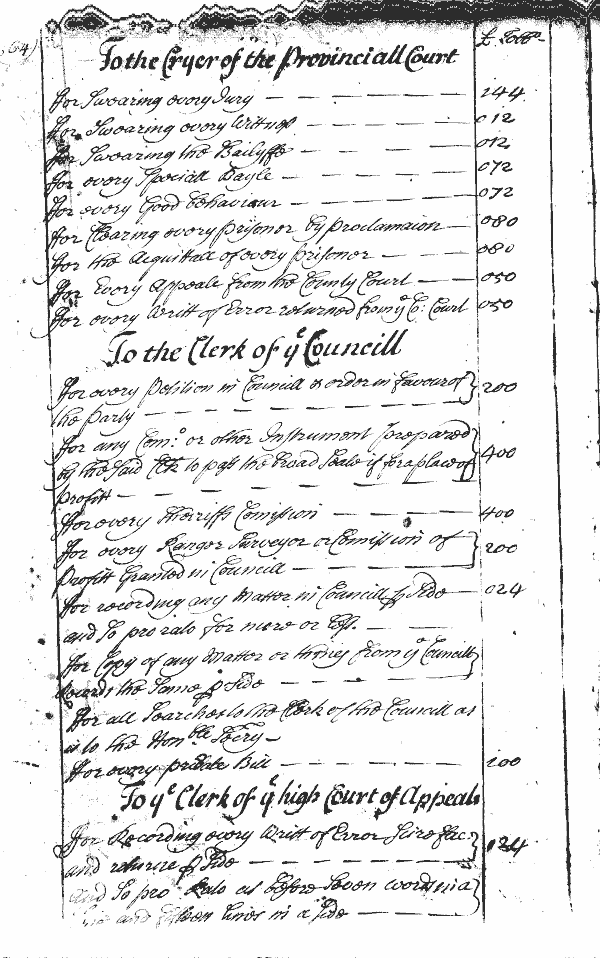 64)
To the Cryer of the Provinciall Court
£ Tobbo
ffor Swearing every Jury 144
ffor Swearing every Witness 012
ffor Swearing the Bailyffe 012
ffor every Speciall Bayle 072
ffor every Good behaviour 072
ffor Clearing every prisoner by proclamaion 080
ffor the Acquittall of every prisoner 080
ffor Every Appeale from the County Court 050
ffor every Writt of Error returned from ye Co: Court 050
To the Clerk of ye Councill
ffor every Petition in Councill & order in favour of 200
the Party
ffor any Com:o or other Instrument prepared
by the said Clk to pass the broad Seale if for a place of 400
profitt
ffor every Sherriffs Comission 400
ffor every Ranger Surveyor or Comission of 200
Profitt Granted in Councill
ffor recording any Matter in Councill p Side 024
and So pro rato for more or less.
ffor Copy of any Matter or things from ye Councill
Records the Same p Side
ffor all Searches to the Clerk of the Councill as
is to the Honble Secry
ffor every private Bill 100
To ye Clerk of ye high Court of Appeals
ffor Recording every Writt of Error Scire ffac: 024
and returne p Side
and So pro Rato as before Seven words in a
and fifteen lines in a Side